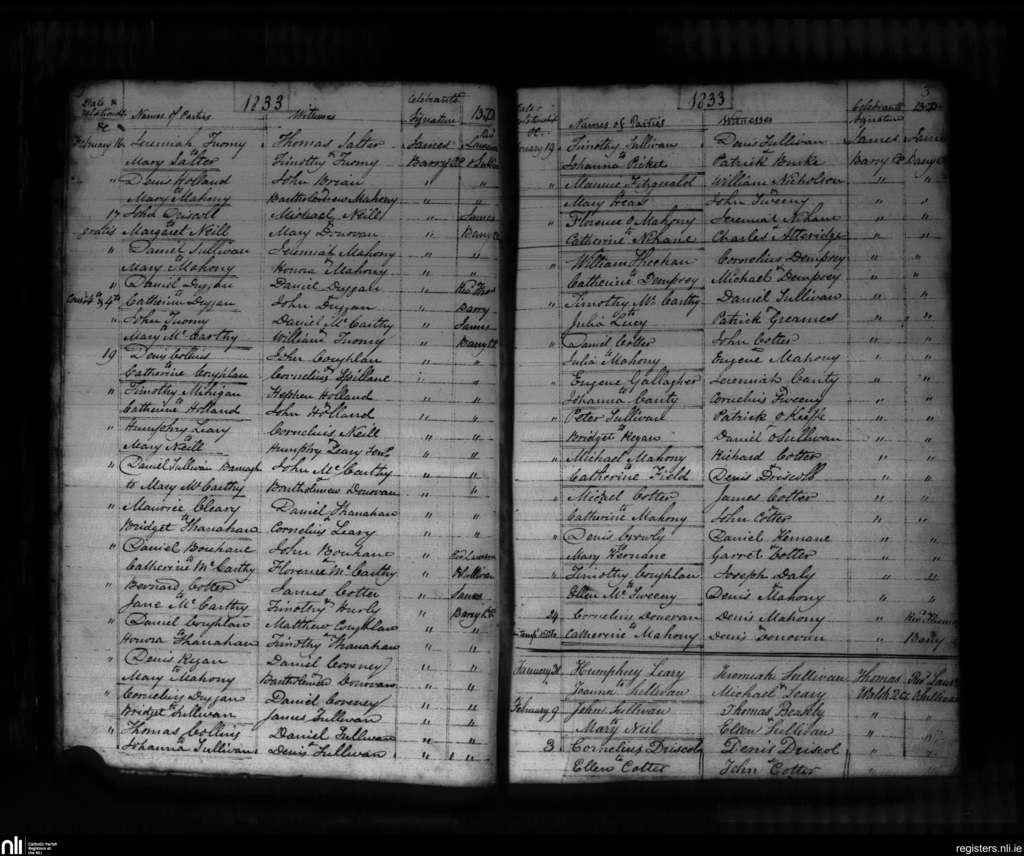 1833
Date & Names of Parties Witnesses Celebrants Signature
February 16 Jeremiah Twomy Thomas Salter James
to Mary Salter Timothy Twomy Barry
" Denis Holland John Brian " "
to Mary Mahony Bartholomew Mahony " "
17 John Driscoll Michael Neill " James
gratis Margaret Neill Mary Donovan " Barry
" Daniel Sullivan Jeremiah Mahony " "
Mary Mahony Honora Mahony " "
" Daniel Duggan Daniel Duggan "
Catherine Duggan John Duggan Barry
" John Twomy Daniel McCarthy " James
Mary McCarthy William Twomy " Barry
19 Denis Collins John Coughlan " "
Catherine Coughlan Cornelius Spillane "
" Timothy Mihigan Stephen Holland " "
Catherine Holland John Holland " "
" Humphry Leary Cornelius Neill " "
Mary Neill Humphry Leary " "
" Daniel Sullivan John McCarthy " "
to Mary McCarthy Bartholomew Donovan " "
" Maurice Cleary Daniel Shanahan " "
Bridget Shanahan Cornelius Leary " "
" Daniel Bouhane John Bouhane "
Catherine McCarthy Florence McCarthy " O Sullivan
" Bernard Cotter James Cotter " James
Jane McCarthy Timothy Hurly " Barry
" Daniel Coughlan Matthew Coughlan " "
Honora Shanahan Timothy Shanahan " "
" Denis Regan Daniel Coveney " "
Mary Mahony Bartholomew Donovan " "
" Cornelius Duggan Daniel Coveney " "
Bridget Sullivan James Sullivan " "
" Thomas Collins Daniel Sullivan " "
Johanna Sullivan Denis Sullivan " "
3
1833
Names of Parties Witnesses Celebrants Signature
19 Timothy Sullivan Denis Sullivan James James
Johanna Picket Patrick Burke Barry Barry
" Maurice Fitzgerald William Nicholson " "
Mary Heas John Sweeny " "
" Florence O Mahony Jeremiah Nihane " "
Catherine Nihane Charles Atteridge " "
" William Sheehan Cornelius Dempsey " "
Catherine Dempsey Michael Dempsey " "
" Timothy McCarthy Daniel Sullivan " "
Julia Lucy Patrick Greames " "
" Daniel Cotter John Cotter " "
Julia Mahony Eugene Mahony " "
" Eugene Gallagher Jeremiah Canty " "
Johanna Canty Cornelius Sweeny " "
" Peter Sullivan Patrick O Keeffe " "
Bridget Regan Daniel O Sullivan " "
" Michael Mahony Richard Cotter " "
Catherine Field Denis Driscoll " "
" Michael Cotter James Cotter " "
Catherine Mahony John Cotter " "
" Denis Crowly Daniel Kernane " "
Mary Kernane Garret Cotter " "
" Timothy Coughlan Joseph Daly " "
Ellen McSweeny Denis Mahony " "
24 Cornelius Donovan Denis Mahony "
Catherine Mahony Denis Donovan " Barry
January 31 Humphrey Leary Jeremiah Sullivan Thomas
Joanna Sullivan Michael Leary
February 9 John Sullivan Thomas Beakly " "
Mary Neil Ellen Sullivan " "
3 Cornelius Driscol Denis Driscol " "
Ellen Cotter John Cotter " "
nli
Catholic Parish
Registers at
the NLI
registers.nli.ie